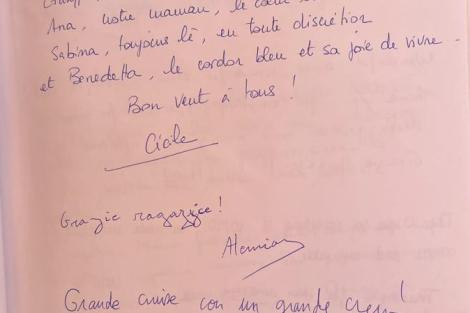 Ana, notre maman, le cœur
Sabina, toujours là, en toute discrétion
et Benedetta, le cordon bleu et sa joie de vivre.
Bon vent à tous !
Cécile
Grazie ragazze!
Grande cuise con un grande Crew!